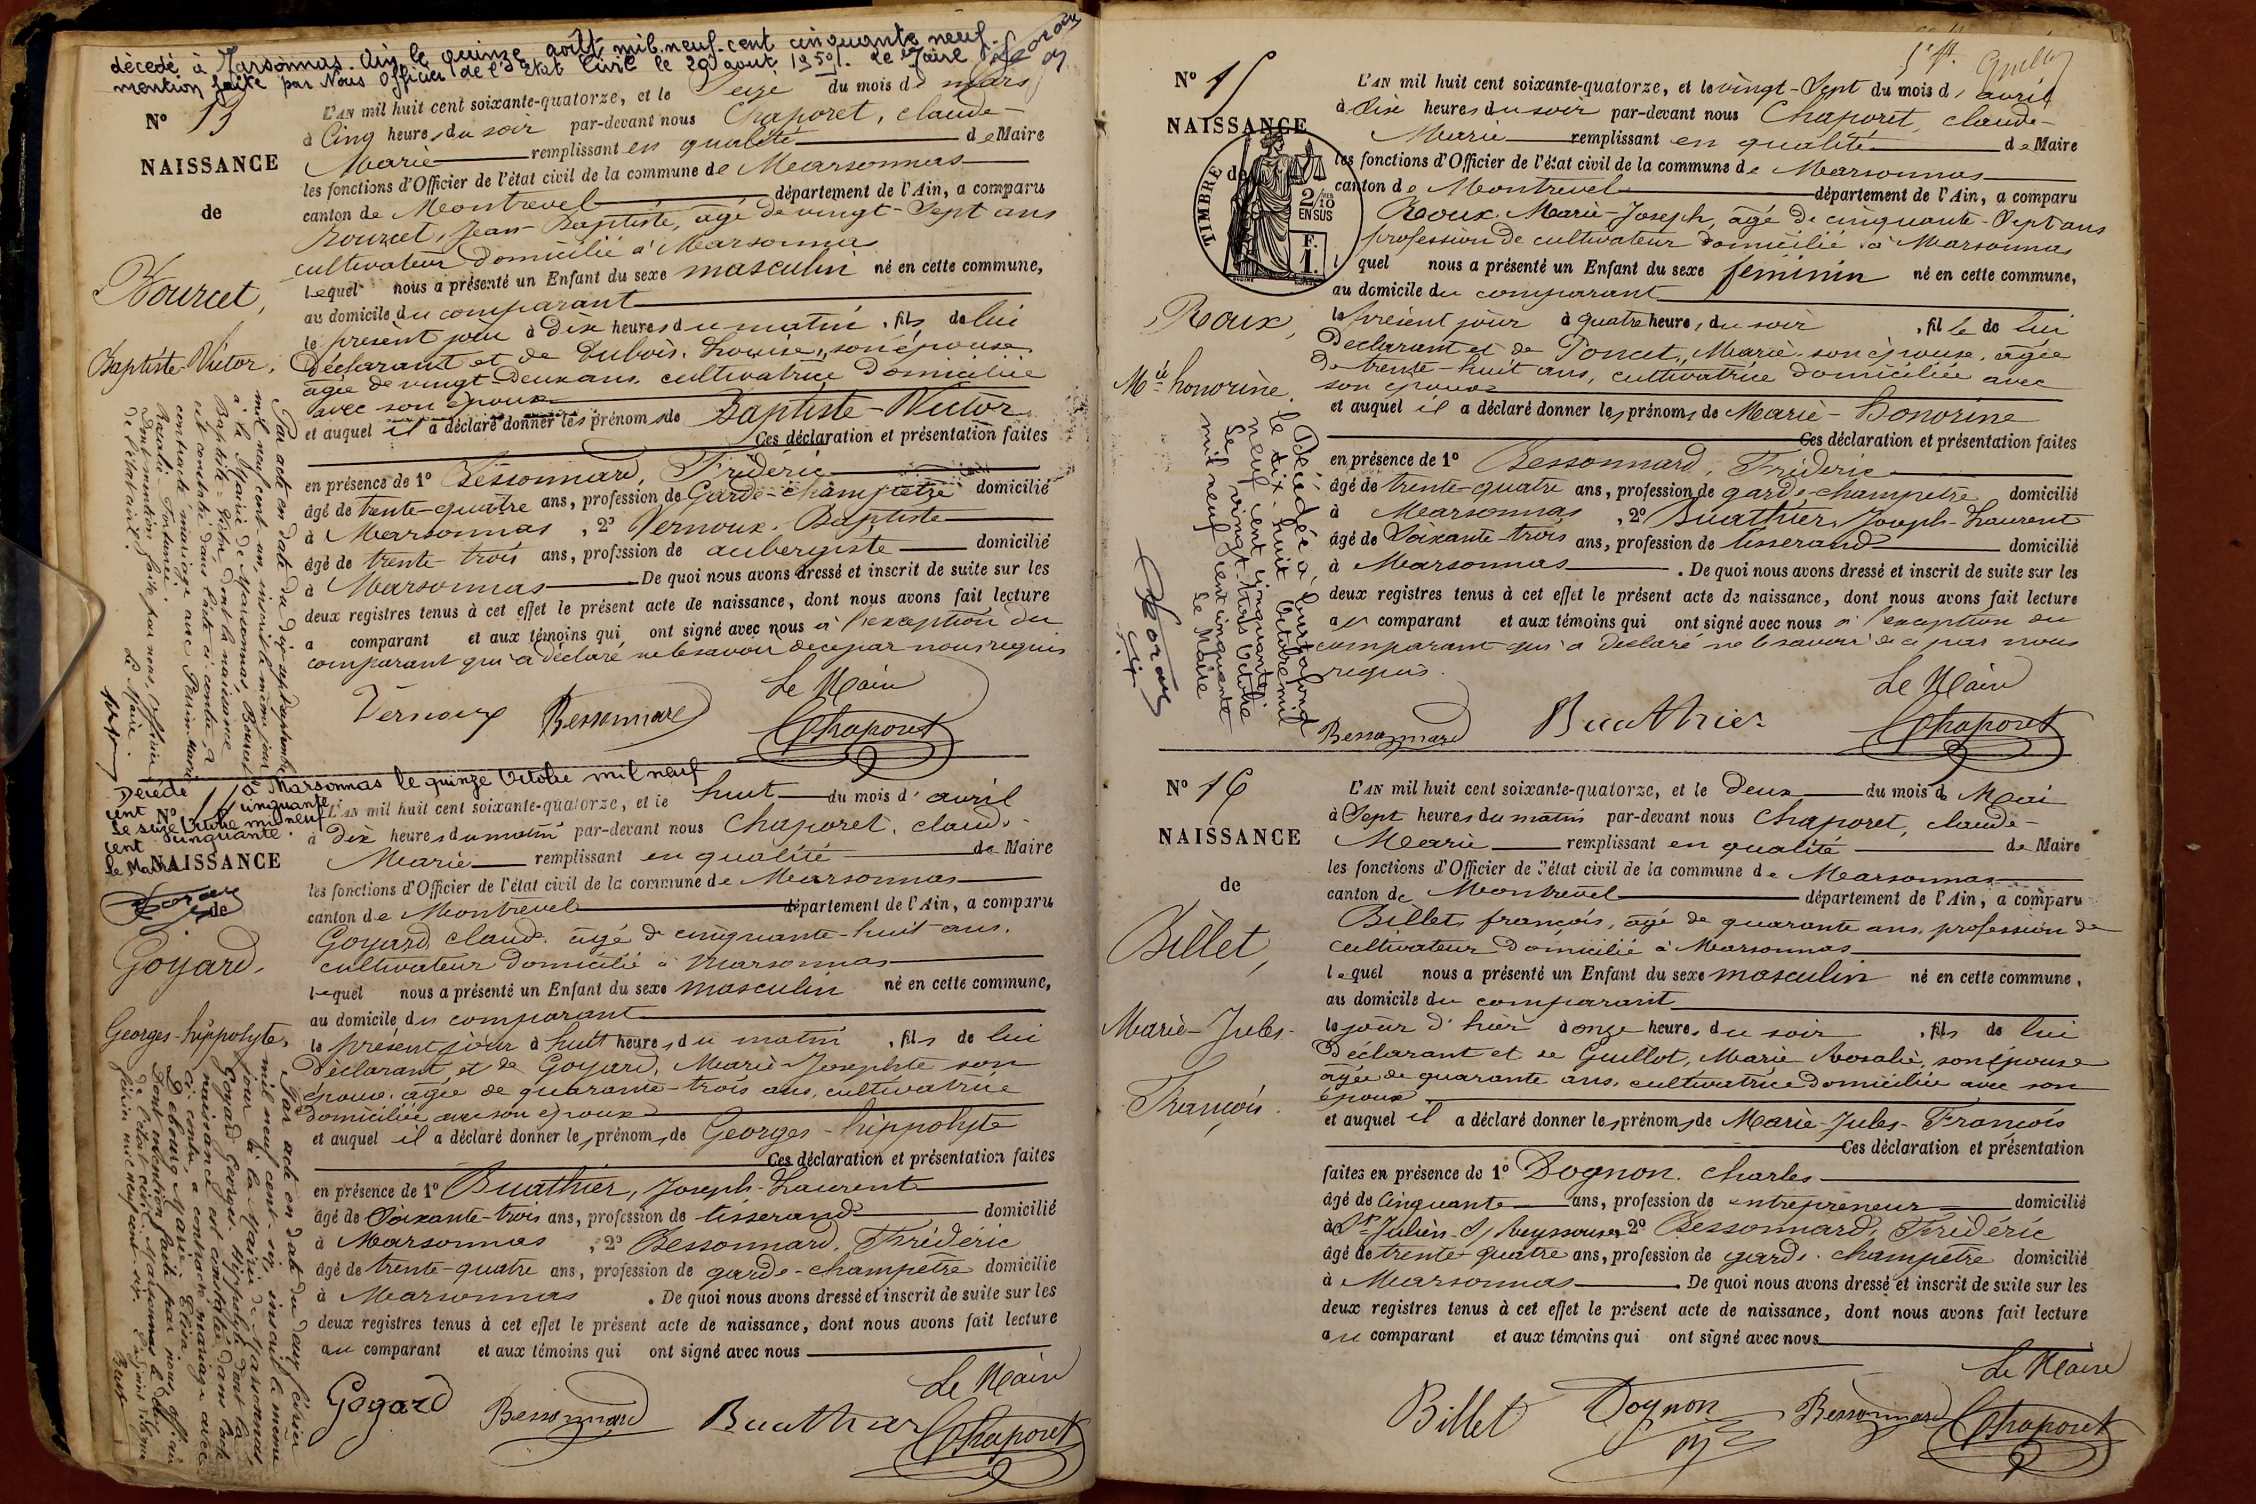 décedé à Marsonnas. Ain le quinze août mil-neuf-cent cinquante neuf.
mention faite par Nous Officier de l'Etat Civil le 20 aout 1959. Le Maire
N° 13
NAISSANCE
de
Bourcet,
Baptiste-Victor.
L'AN mil huit cent soixante-quatorze, et le Seize du mois de mars
à Cinq heures du soir par-devant nous Chaporet, claude-
Marie remplissant en qualité de Maire
les fonctions d'Officier de l'état civil de la commune de Marsonnas
canton de Montrevel département de l'Ain, a comparu
Bourcet, Jean-Baptiste, âgé de vingt-Sept ans
cultivateur domicilié à Marsonnas
lequel nous a présenté un Enfant du sexe masculin né en cette commune,
au domicile du comparant
le présent jour à dix heures du matin, fils de lui
Déclarant et de Dubois, Louise, son épouse
âgée de vingt-deux ans, cultivatrice domiciliée
avec son époux
et auquel il a déclaré donner les prénoms de Baptiste-Victor
Ces déclaration et présentation faites
en présence de 1° Bessonnard, Frédéric
âgé de trente-quatre ans, profession de Garde-champetre domicilié
à Marsonnas, 2° Vernoux, Baptiste
âgé de trente-trois ans, profession de aubergiste domicilié
à Marsonnas De quoi nous avons dressé et inscrit de suite sur les
deux registres tenus à cet effet le présent acte de naissance, dont nous avons fait lecture
a comparant et aux témoins qui ont signé avec nous à l'exception du
comparant qui a déclaré ne le savoir de ce par nous requis
Le Maire
Vernoux Bessonnard Chaporet
Par acte en date du dix-septembre
mil neuf cent un, inscrit le même jour
à la Mairie de Marsonnas, Bourcet
Baptiste-Victor, dont la naissance
est constatée dans l'acte ci-contre, a
contracté mariage avec Perrin Marie
Rosalie Fortunée.
Dont mention faite par nous, officier
de l'état civil.
Le Maire
Décédé à Marsonnas le quinze Octobre mil neuf
cent cinquante
Le seize Octobre mil neuf
cent cinquante.
le Maire
N° 14
NAISSANCE
de
Goyard,
Georges-hippolyte,
L'AN mil huit cent soixante-quatorze, et le huit du mois d'avril
à dix heures du matin par-devant nous Chaporet, claude-
Marie remplissant en qualité de Maire
les fonctions d'Officier de l'état civil de la commune de Marsonnas
canton de Montrevel département de l'Ain, a comparu
Goyard claude âgé de cinquante-huit ans.
cultivateur domicilié à Marsonnas
lequel nous a présenté un Enfant du sexe masculin né en cette commune,
au domicile du comparant
le présent jour à huit heures du matin, fils de lui
Déclarant et de Goyard, Marie-Josephte son
épouse âgée de quarante-trois ans, cultivatrice
domiciliée avec son époux
et auquel il a déclaré donner les prénoms de Georges-hippolyte
Ces déclaration et présentation faites
en présence de 1° Buathier, Joseph-Laurent
âgé de Soixante-trois ans, profession de tisserand domicilié
à Marsonnas, 2° Bessonnard, Frédéric
âgé de trente-quatre ans, profession de garde-champetre domicilié
à Marsonnas. De quoi nous avons dressé et inscrit de suite sur les
deux registres tenus à cet effet le présent acte de naissance, dont nous avons fait lecture
au comparant et aux témoins qui ont signé avec nous
Le Maire
Goyard Bessonnard Buathier Chaporet
Par acte en date du deux février
mil neuf cent-six, inscrit le même
jour à la Mairie de Marsonnas,
Goyard Georges-Hippolyte dont la
naissance est constatée dans l'acte
ci-contre, a contracté mariage avec
Debourg Marie Elisa.
Dont mention faite par nous, officier
de l'état civil. Marsonnas le deux
février mil neuf cent-six.
N° 15
NAISSANCE
de
TIMBRE
2/10
EN SUS
F.
1.
Roux,
Mie honorine.
L'AN mil huit cent soixante-quatorze, et le vingt-Sept du mois d'avril
à Six heures du soir par-devant nous Chaporet, claude-
Marie remplissant en qualité de Maire
les fonctions d'Officier de l'état civil de la commune de Marsonnas
canton de Montrevel département de l'Ain, a comparu
Roux, Marie-Joseph, âgé de cinquante-Sept ans
profession de cultivateur domicilié à Marsonnas
l quel nous a présenté un Enfant du sexe féminin né en cette commune,
au domicile du comparant
le présent jour à quatre heures du soir, fille de lui
Declarant et de Poncet, Marie son épouse, âgée
de trente-huit ans, cultivatrice domiciliée avec
son époux
et auquel il a déclaré donner les prénoms de Marie-Honorine
Ces déclaration et présentation faites
en présence de 1° Bessonnard, Frédéric
âgé de trente-quatre ans, profession de garde-champetre domicilié
à Marsonnas, 2° Buathier, Joseph-Laurent
âgé de Soixante-trois ans, profession de tisserand domicilié
à Marsonnas. De quoi nous avons dressé et inscrit de suite sur les
deux registres tenus à cet effet le présent acte de naissance, dont nous avons fait lecture
au comparant et aux témoins qui ont signé avec nous à l'exception du
comparant qui a déclaré ne le savoir de ce par nous
requis.
Le Maire
Bessonnard Buathier Chaporet
Décédée à Curtafond
le dix-huit Octobre mil
neuf cent cinquante
Le vingt-trois Octobre
mil neuf cent cinquante
Le Maire
N° 16
NAISSANCE
de
Billet,
Marie-Jules-
François.
L'AN mil huit cent soixante-quatorze, et le Deux du mois de Mai
à Sept heures du matin par-devant nous Chaporet, claude-
Marie remplissant en qualité de Maire
les fonctions d'Officier de l'état civil de la commune de Marsonnas
canton de Montrevel département de l'Ain, a comparu
Billet, françois, âgé de quarante ans, profession de
cultivateur domicilié à Marsonnas
lequel nous a présenté un Enfant du sexe masculin né en cette commune,
au domicile du comparant
le jour d'hier à onze heures du soir, fils de lui
Déclarant et de Guillot, Marie Rosalie, son épouse
âgée de quarante ans, cultivatrice domiciliée avec son
époux
et auquel il a déclaré donner les prénoms de Marie-Jules-François
Ces déclaration et présentation
faites en présence de 1° Dognon, Charles
âgé de Cinquante ans, profession de entrepreneur domicilié
à St Julien-S/Reyssouze, 2° Bessonnard, Frédéric
âgé de trente-quatre ans, profession de garde-champetre domicilié
à Marsonnas. De quoi nous avons dressé et inscrit de suite sur les
deux registres tenus à cet effet le présent acte de naissance, dont nous avons fait lecture
au comparant et aux témoins qui ont signé avec nous
Le Maire
Billet Dognon Bessonnard Chaporet